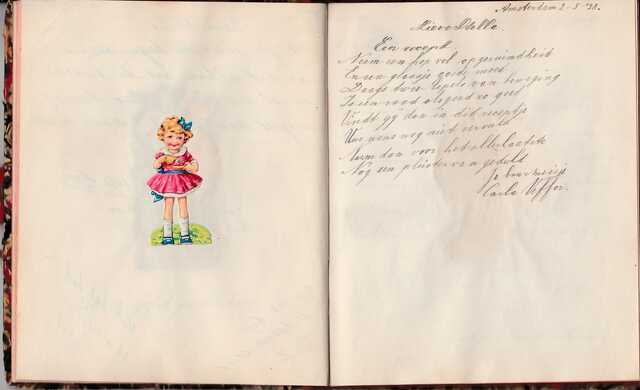 Amsterdam 2-5-'38.
Lieve Stella
Een recept.
Neem een kop vol opgeruimdheid
En een glaasje goede moed
Daarbij twee lepels van
Is een raad altijd zo goed
Vindt gij dan in dit receptje
Uw wens nog niet vervuld
Neem dan voor het allerlaatste
Nog een pleister van geduld
Je
Carla